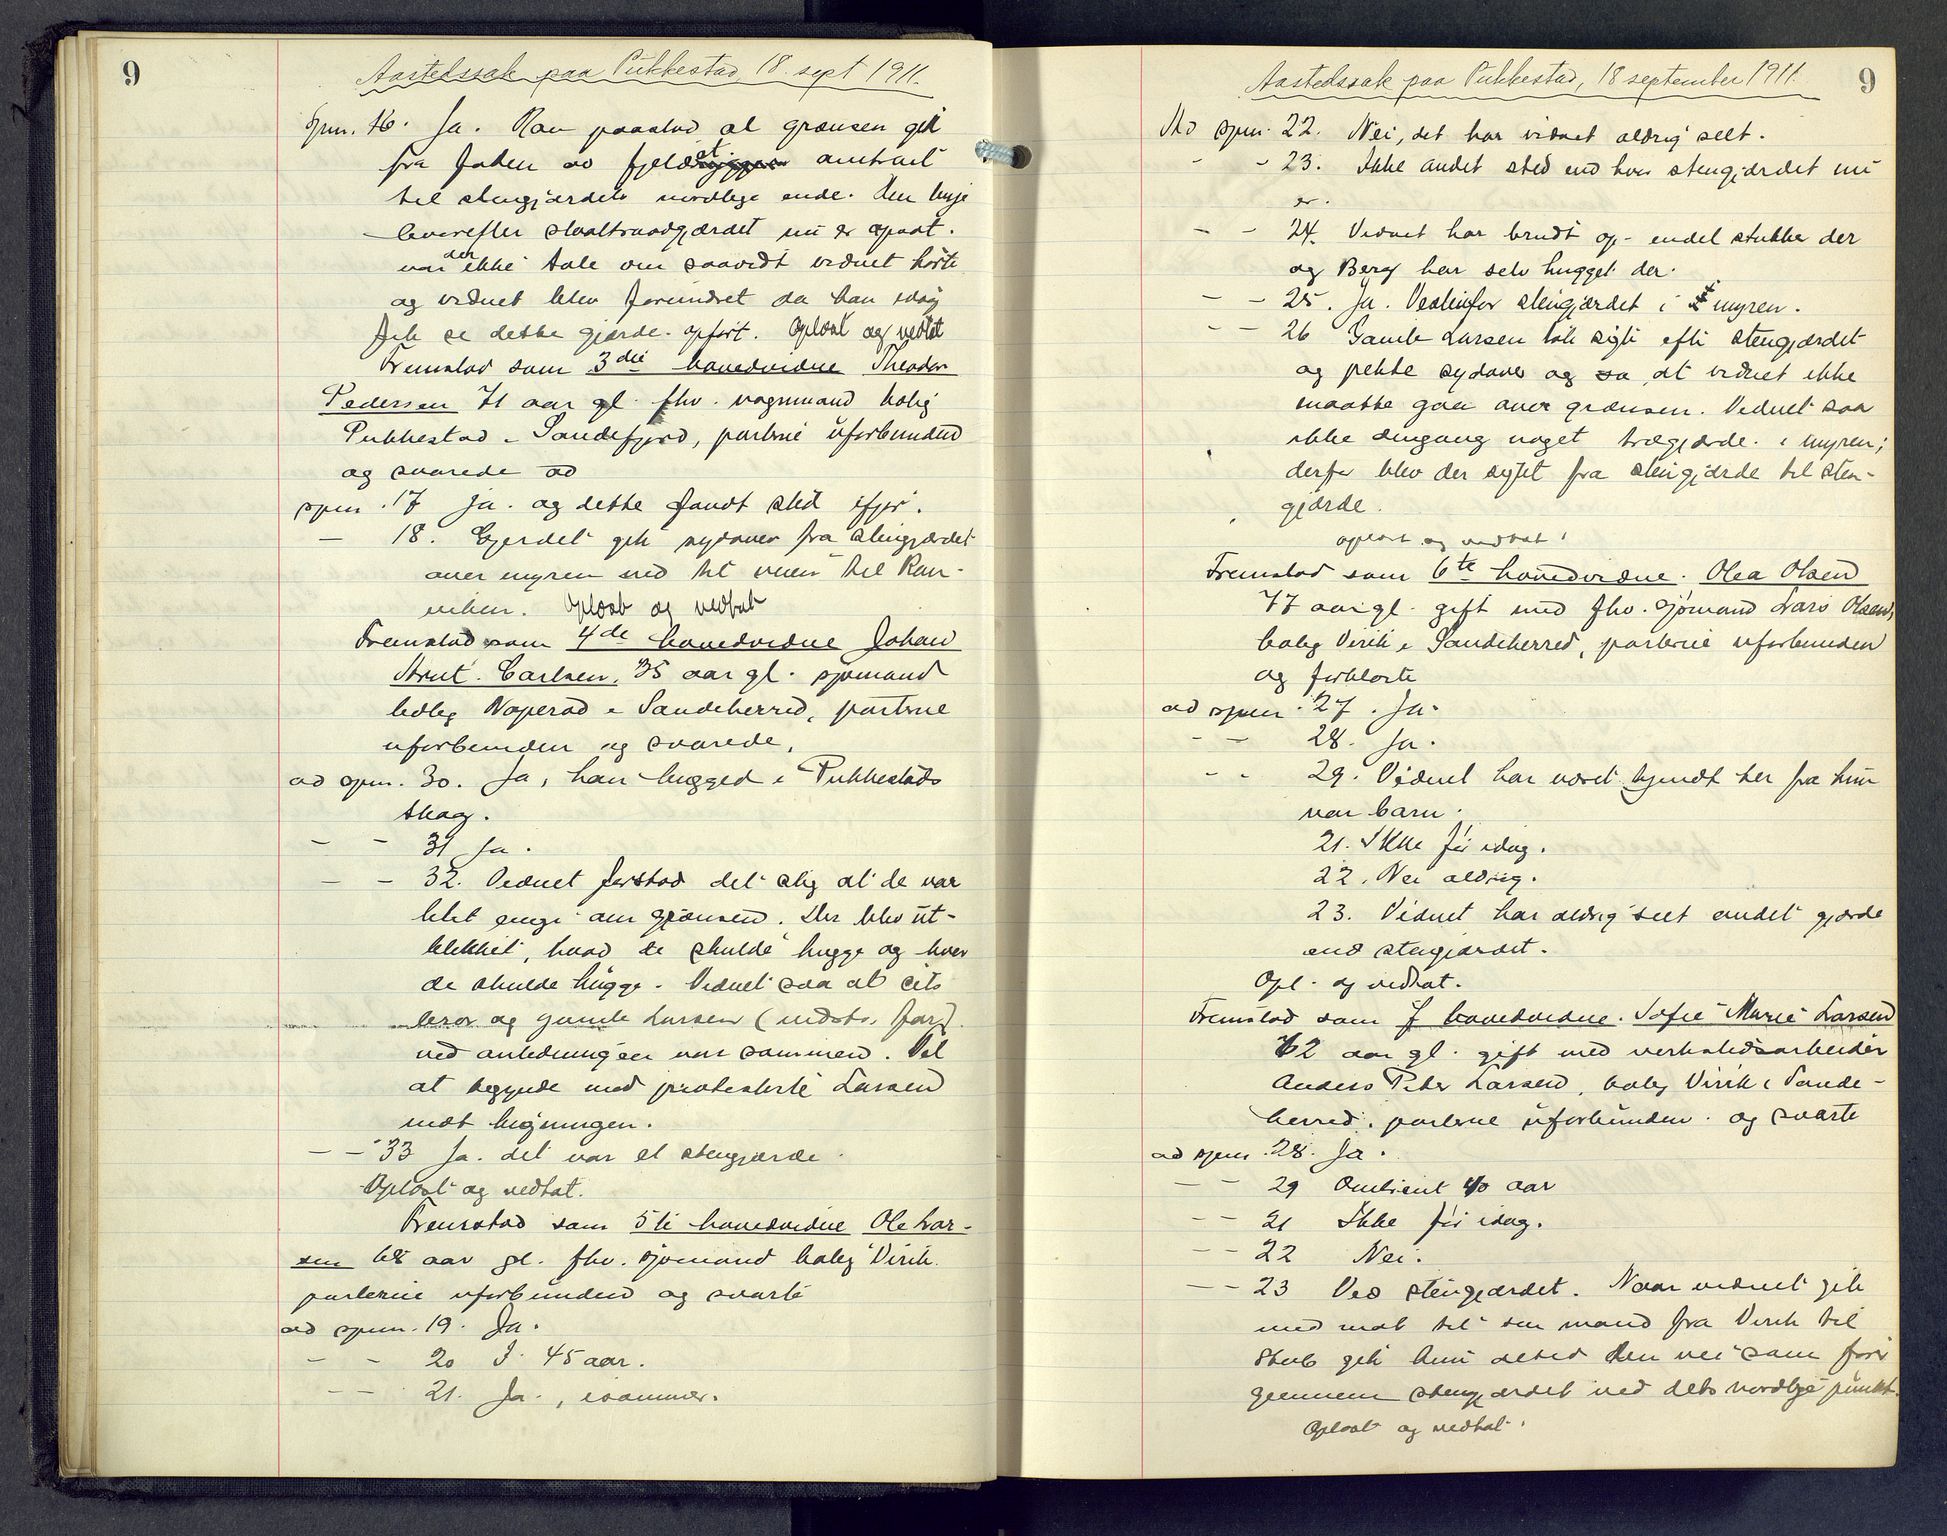 9
Aastedssak paa Pukkestad, 18. sept 1911.
Spm. 16. Ja. Han paastod at grænsen gik
fra foden av fjeldet omtrent
til stengjærdets nordlige ende. Den linje
hvorefter staaltraadgjærdet nu er opsat.
var der ikke tale om saavidt vidnet hørte
og vidnet blev forundret da han idag
fik se dette gjærde opført. Oplæst og vedtat
Fremstod som 3die hovedvidne Theodor
Pedersen 71 aar gl. fhv. vognmand bolig
Pukkestad i Sandefjord, parterne uforbunden
og svarede ad
spm. 17 Ja. og dette fandt sted ifjor.
— 18. Gjerdet gik sydover fra stengjærdet
over myren ned til veien til Ran-
viken. Oplæst og vedtat
Fremstod som 4de hovedvidne Johan
Arnt. Carlsen, 35 aar gl. sjømand
bolig Noperød i Sandeherred, parterne
uforbunden og svarede,
ad spm. 30. Ja, han hugged i Pukkestads
skog.
— — 31 Ja.
— — 32. Vidnet forstod det slig at de var
litt enige om grænsen. Der blev ut-
blekket, hvad de skulde hugge og hvor
de skulde hugge. Vidnet saa at cits
bror og gamle Larsen (indst. far)
ved anledningen var sammen. Ved
at begynde med protesterte Larsen
mot hugningen.
— — 33 Ja. det var et stengjærde.
Oplæst og vedtat.
Fremstod som 5te hovedvidne Ole Lar-
sen 68 aar gl. fhv. sjømand bolig Virik.
parterne uforbunden og svarte
ad spm. 19. Ja.
— — 20 I 45 aar.
— — 21. Ja., isommer.
Aastedssak paa Pukkestad, 18 september 1911.
9
Ad spm. 22. Nei, det har vidnet aldrig seet.
- - 23. Ikke andet sted end hvor stengjærdet nu
er.
- - 24. Vidnet har brudt op endel stubber der
og Berg har selv hugget der.
— — 25. Ja. Vestenfor stengjærdet i myren.
— — 26 Gamle Larsen tok sigte efter stengjærdet
og pekte sydover og sa at vidnet ikke
maatte gaa over grænsen. Vidnet saa
ikke dengang noget trægjærde i myren;
derfor blev der sigtet fra stengjærde til sten-
gjærde.
oplæst og vedtat.
Fremstod som 6te hovedvidne. Olea Olsen
77 aar gl. gift med fhv. sjømand Lars Olsen,
bolig Virik i Sandeherred, parterne uforbunden
og forklarte
ad spm. 27. Ja.
- — 28. Ja.
- - 29. Vidnet har været kjendt her fra hun
var barn.
21. Ikke før idag.
22. Nei aldrig.
23. Vidnet har aldrig seet andet gjærde
end stengjærdet.
Opl. og vedtat.
Fremstod som 7 hovedvidne. Sofie Marie Larsen
62 aar gl. gift med verkstedsarbeider
Anders Peter Larsen, bolig Virik i Sande-
herred. parterne uforbunden. og svarte
ad spm. 28. Ja.
— — 29 Omtrent 40 aar
— — 21 Ikke før idag.
— — 22 Nei.
— — 23 Ved stengjærdet. Naar vidnet gik
med mat til sin mand fra Virik til
Stub gik hun altid den vei som fører
gjennem stengjærdet ved dets nordlige punkt.
Oplæst og vedtat.